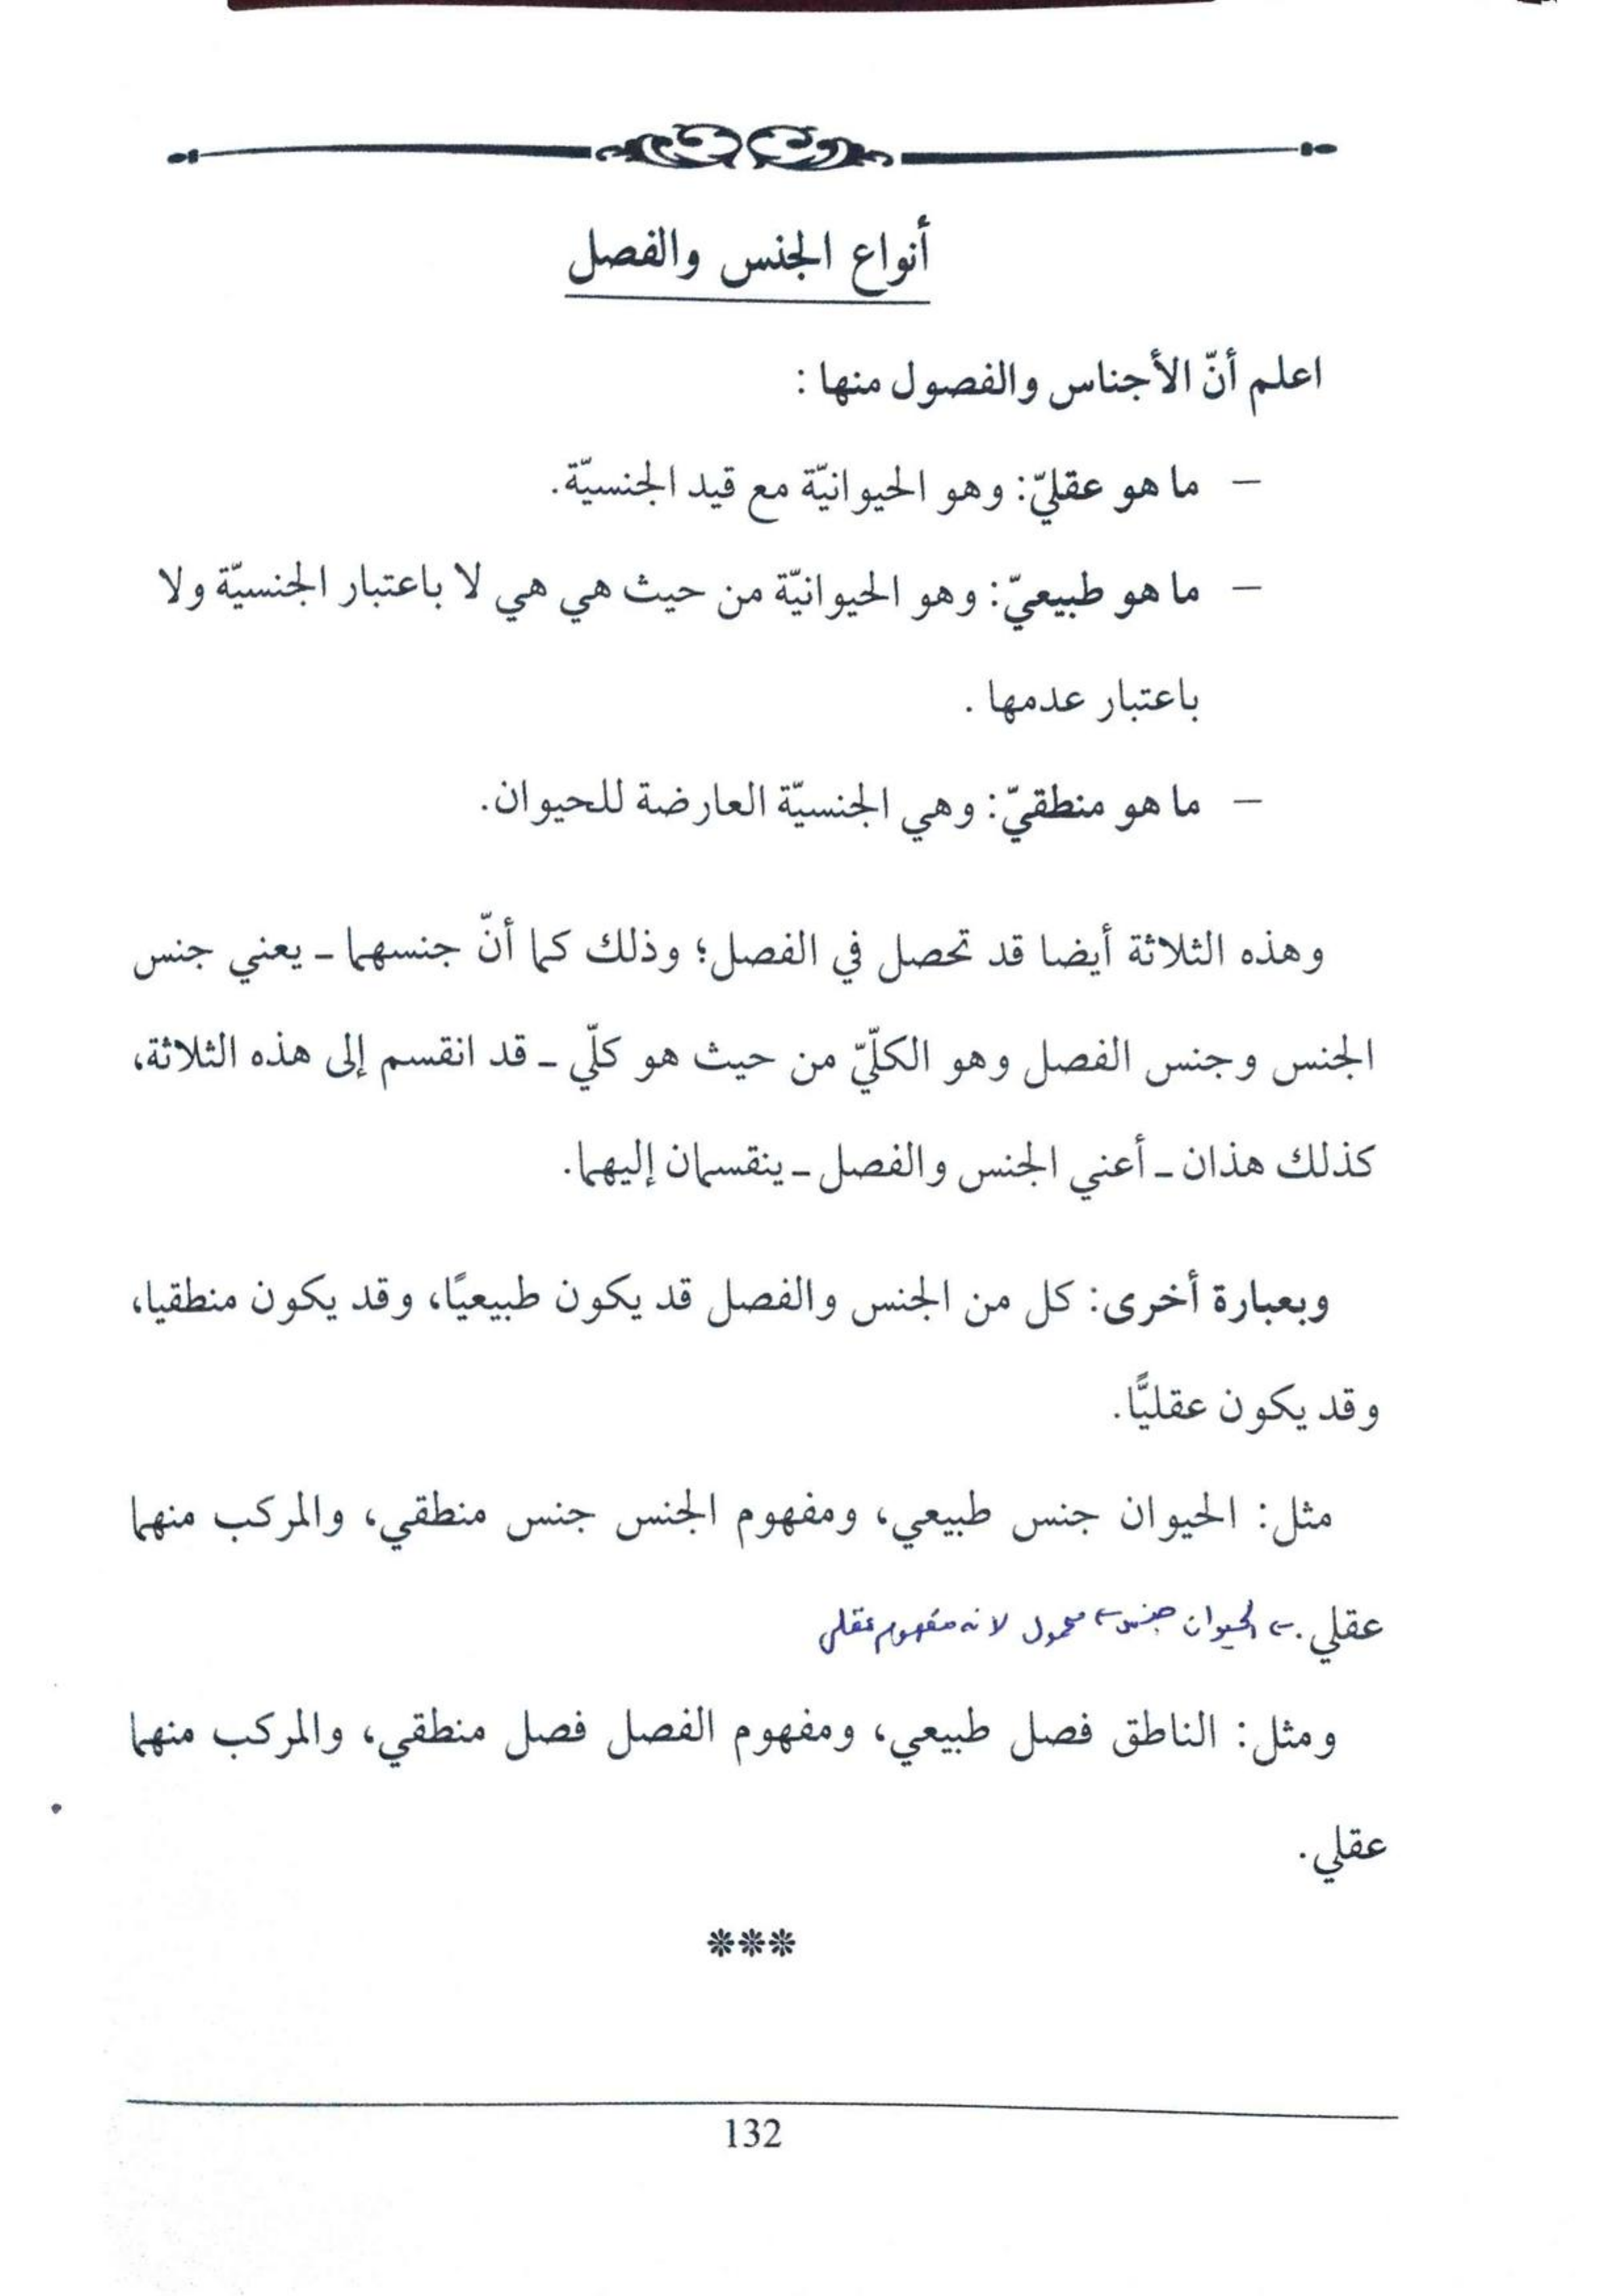 أنواع الجنس والفصل
اعلم أنّ الأجناس والفصول منها :
– ما هو عقليّ: وهو الحيوانيّة مع قيد الجنسيّة.
– ما هو طبيعيّ: وهو الحيوانيّة من حيث هي هي لا باعتبار الجنسيّة ولا
باعتبار عدمها .
– ما هو منطقيّ: وهي الجنسيّة العارضة للحيوان.
وهذه الثلاثة أيضا قد تحصل في الفصل؛ وذلك كما أنّ جنسهما ـ يعني جنس
الجنس وجنس الفصل وهو الكلّيّ من حيث هو كلّي ـ قد انقسم إلى هذه الثلاثة،
كذلك هذان ـ أعني الجنس والفصل ـ ينقسمان إليهما.
وبعبارة أخرى: كل من الجنس والفصل قد يكون طبيعيًا، وقد يكون منطقيا،
وقد يكون عقليًّا.
مثل: الحيوان جنس طبيعي، ومفهوم الجنس جنس منطقي، والمركب منهما
عقلي. ← الحيوان جنس ← محمول لانه مفهوم عقلي
ومثل: الناطق فصل طبيعي، ومفهوم الفصل فصل منطقي، والمركب منهما
عقلي.
***
132